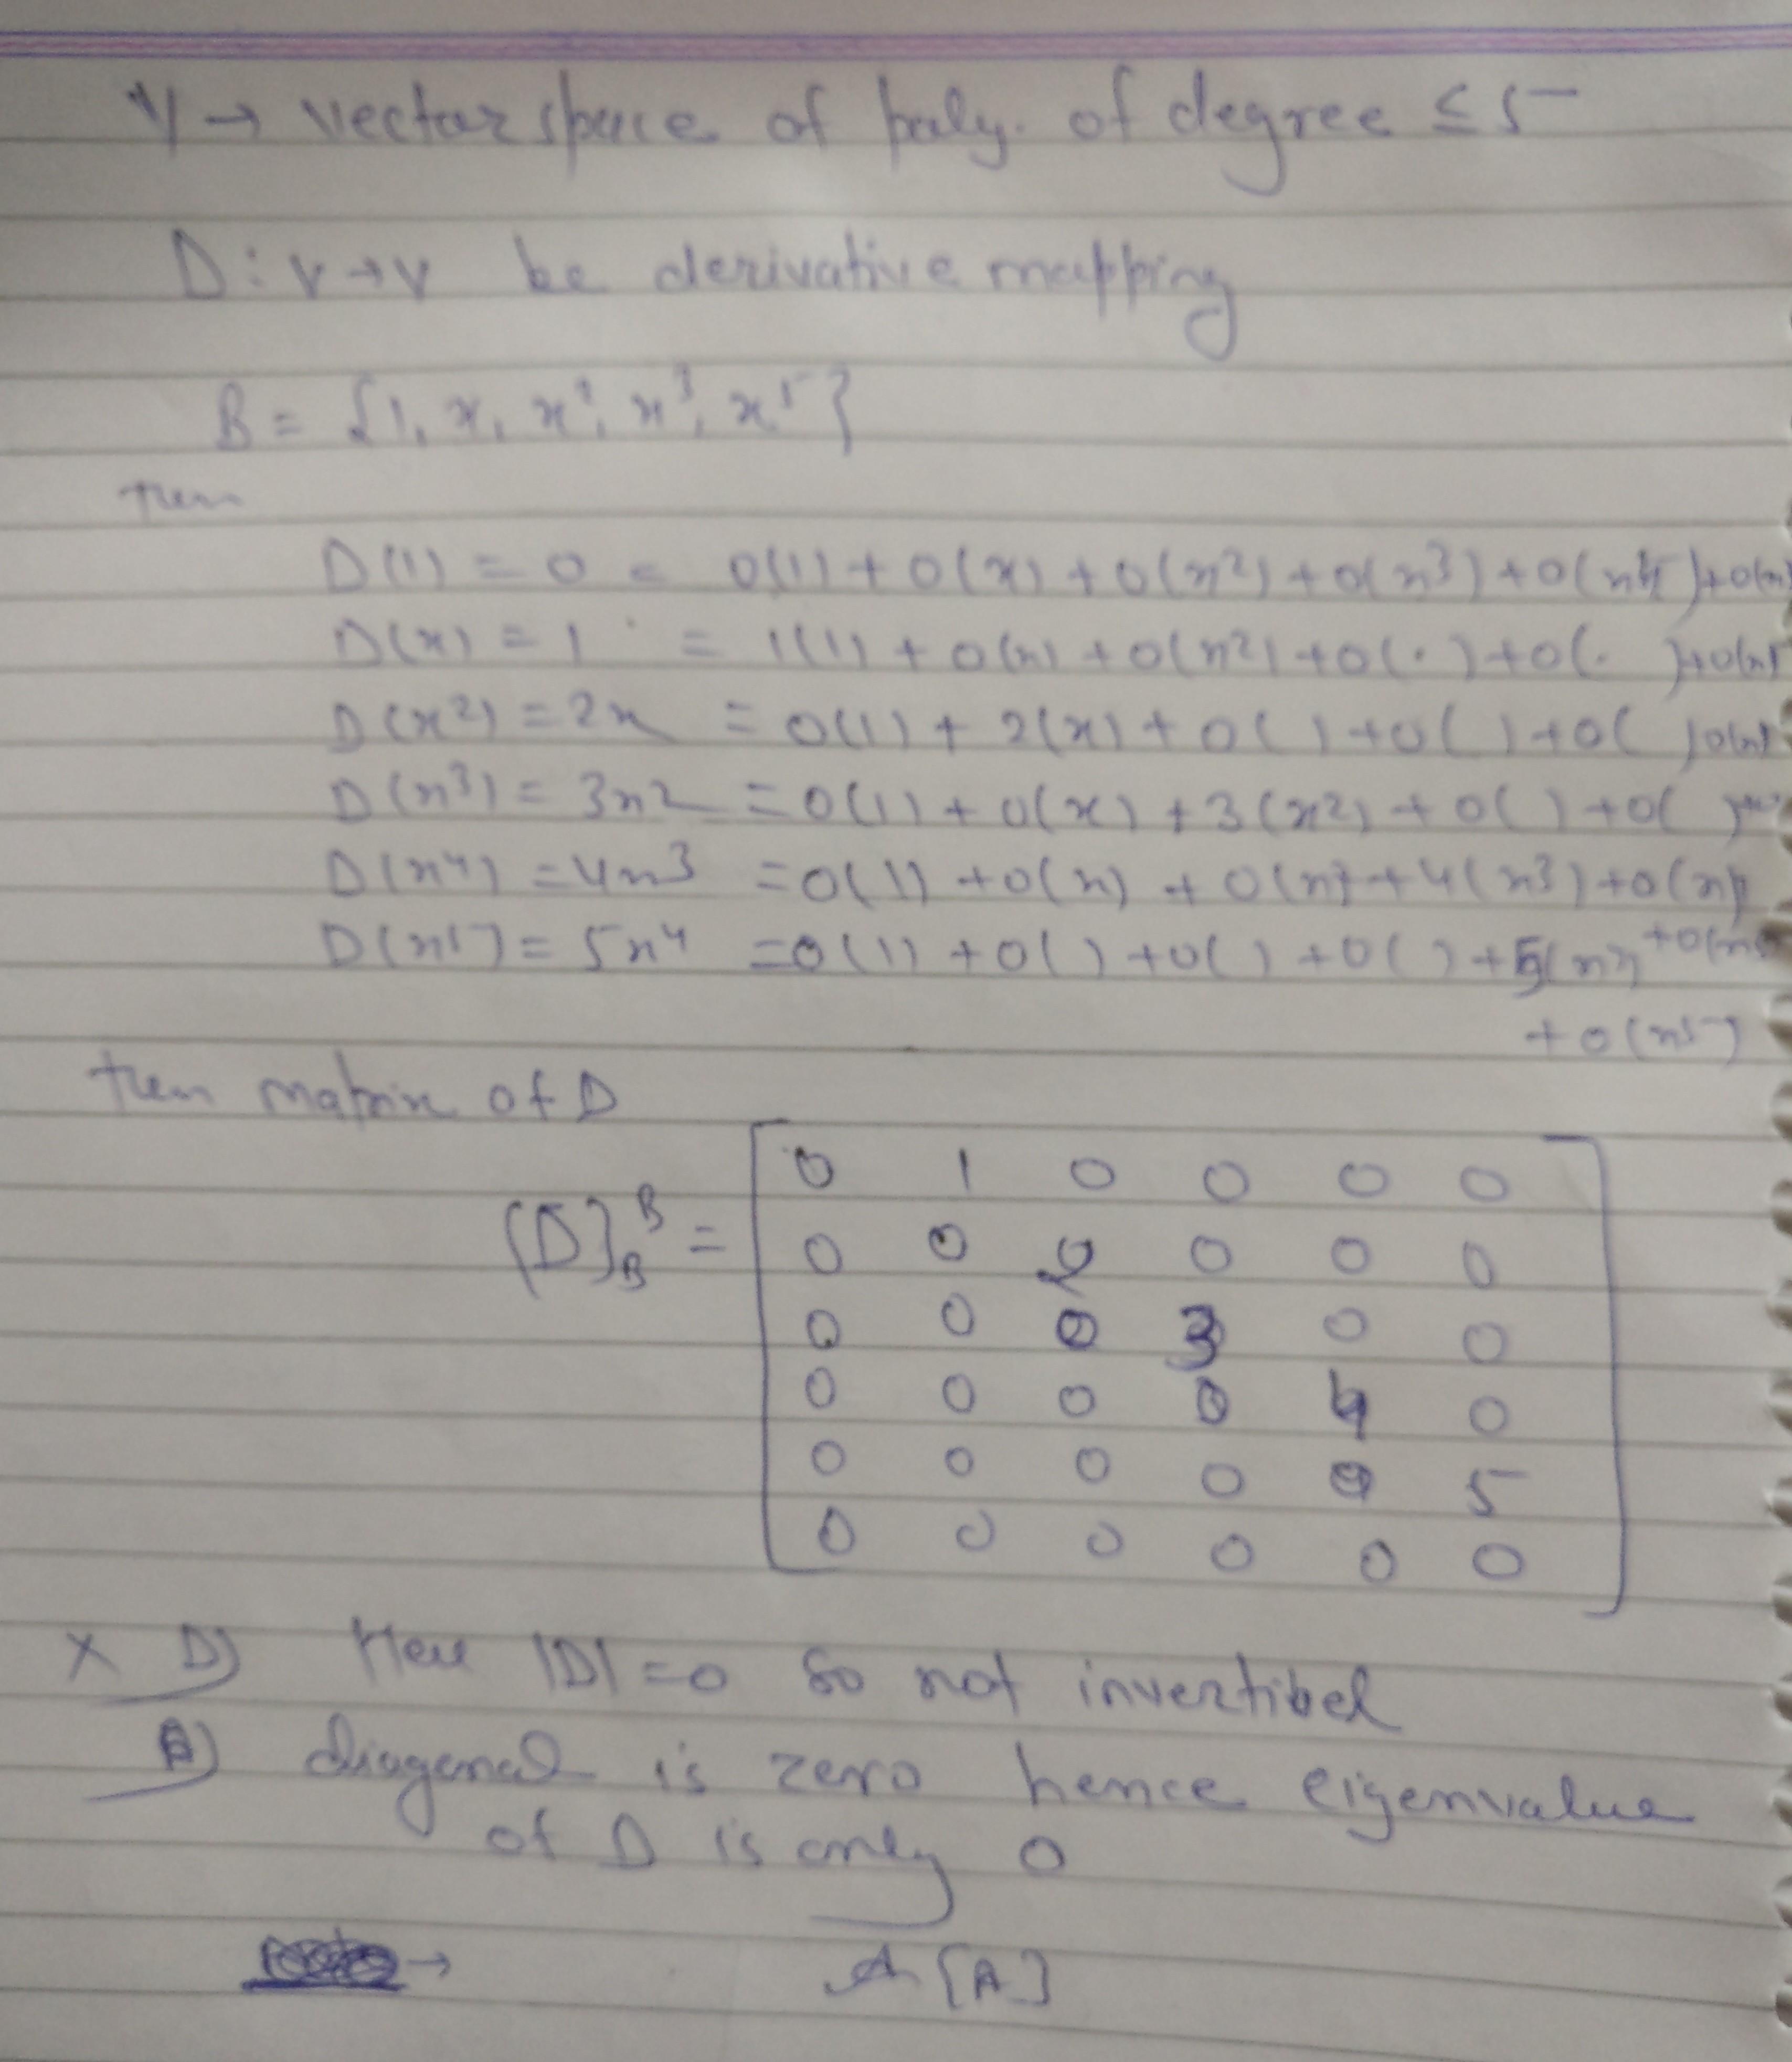 V → vector space of poly. of degree ≤ 5
D: V → V be derivative mapping
B = {1, x, x², x³, x⁵}
then
D(1) = 0 = 0(1) + 0(x) + 0(x²) + 0(x³) + 0(x⁴) + 0(x
D(x) = 1 = 1(1) + 0(x) + 0(x²) + 0(·) + 0(· ) + 0(x⁵
D(x²) = 2x = 0(1) + 2(x) + 0( ) + 0( ) + 0( ) 0(x⁵
D(x³) = 3x² = 0(1) + 0(x) + 3(x²) + 0( ) + 0( )
D(x⁴) = 4x³ = 0(1) + 0(x) + 0(x²) + 4(x³) + 0(x⁴)
D(x⁵) = 5x⁴ = 0(1) + 0( ) + 0( ) + 0( ) + 5(x⁴) + 0(x⁵
+ 0(x⁵)
then matrix of D
[D]_B^B =
0 1 0 0 0 0
0 0 2 0 0 0
0 0 0 3 0 0
0 0 0 0 4 0
0 0 0 0 0 5
0 0 0 0 0 0
X D) Here |D| = 0 so not invertibel
A) diagonal is zero hence eigenvalue
of D is only 0
→ A [A]